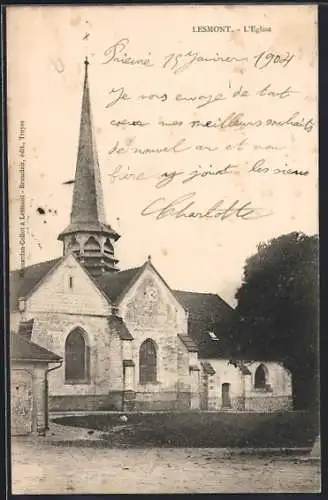 LESMONT. - L'Eglise
15 Janvier 1904
Je vous envoye de tout
cœur mes meilleurs souhaits
de nouvel an et mon
frère y joint les siens
Charlotte
-Collot à Lesmont - Brunclair, édit., Troyes